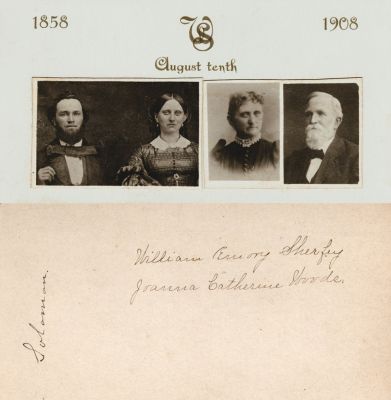 1858
WS
1908
August tenth
William Emory Sherfy
Joanna Catherine Woods.
Solomon.